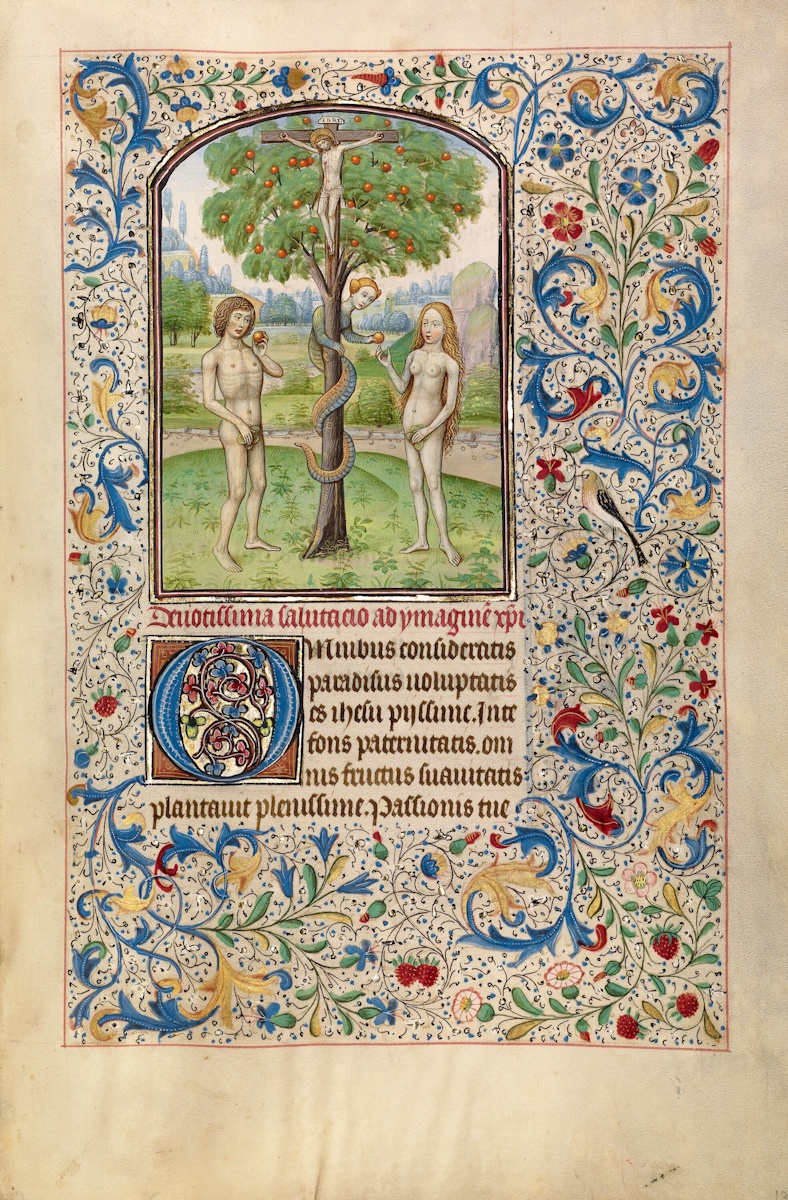 INRI
Deuotissima salutacio ad ymaginē xp̄i
OMnibus consideratis
paradisus uoluptatis
es ihesu pijssime. Inte
fons paternitatis, om
nis fructus suauitatis
plantauit plenissime. Passionis tue